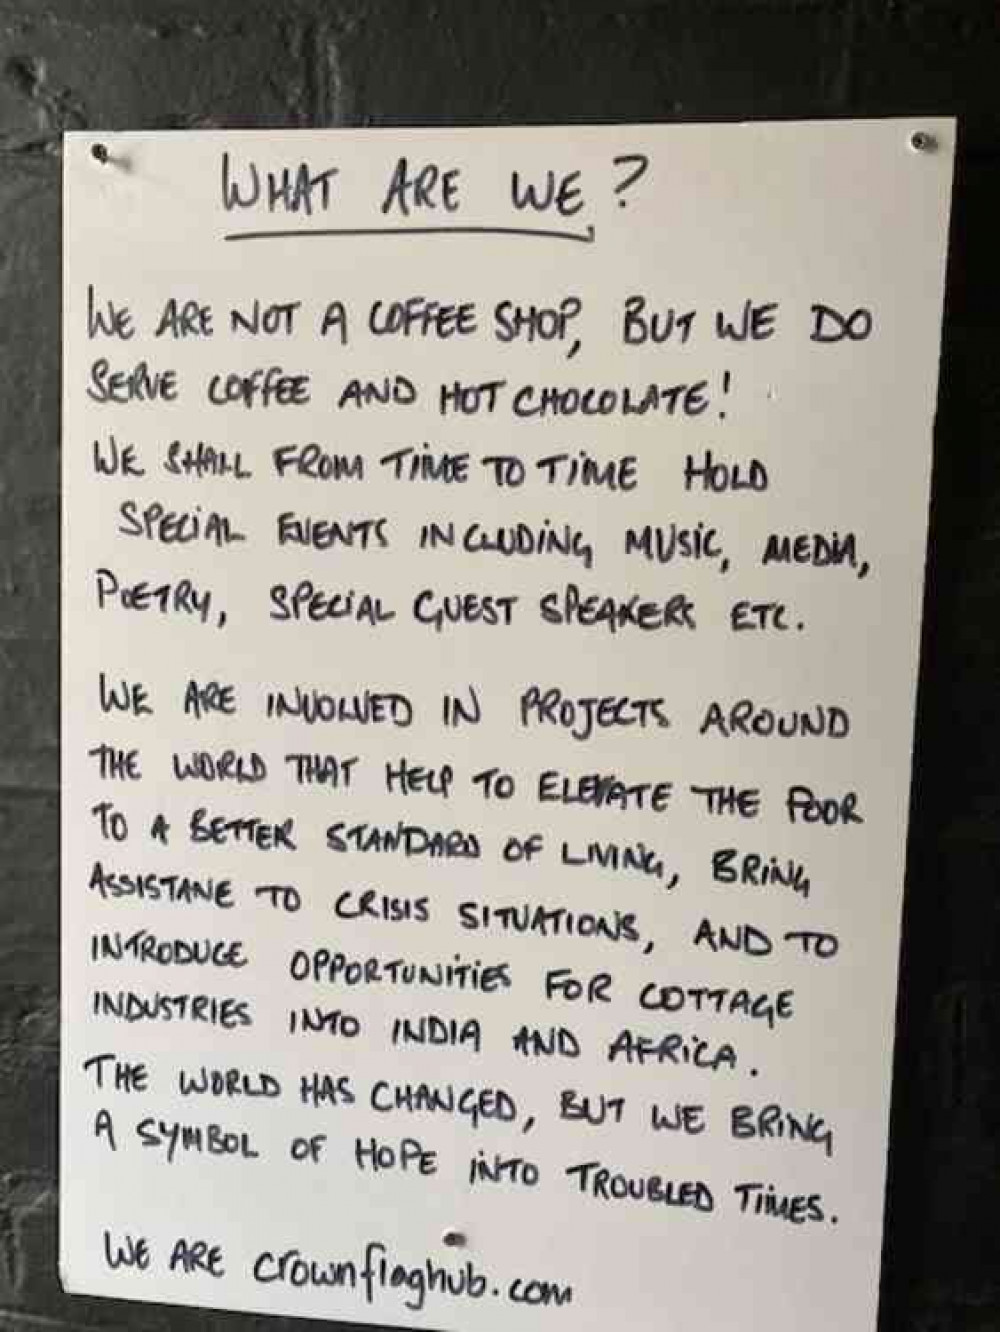 WHAT ARE WE?
WE ARE NOT A COFFEE SHOP, BUT WE DO
SERVE COFFEE AND HOT CHOCOLATE!
WE SHALL FROM TIME TO TIME HOLD
SPECIAL EVENTS INCLUDING MUSIC, MEDIA,
POETRY, SPECIAL GUEST SPEAKERS ETC.
WE ARE INVOLVED IN PROJECTS AROUND
THE WORLD THAT HELP TO ELEVATE THE POOR
TO A BETTER STANDARD OF LIVING, BRING
ASSISTANE TO CRISIS SITUATIONS, AND TO
INTRODUCE OPPORTUNITIES FOR COTTAGE
INDUSTRIES INTO INDIA AND AFRICA.
THE WORLD HAS CHANGED, BUT WE BRING
A SYMBOL OF HOPE INTO TROUBLED TIMES.
WE ARE crownflaghub.com